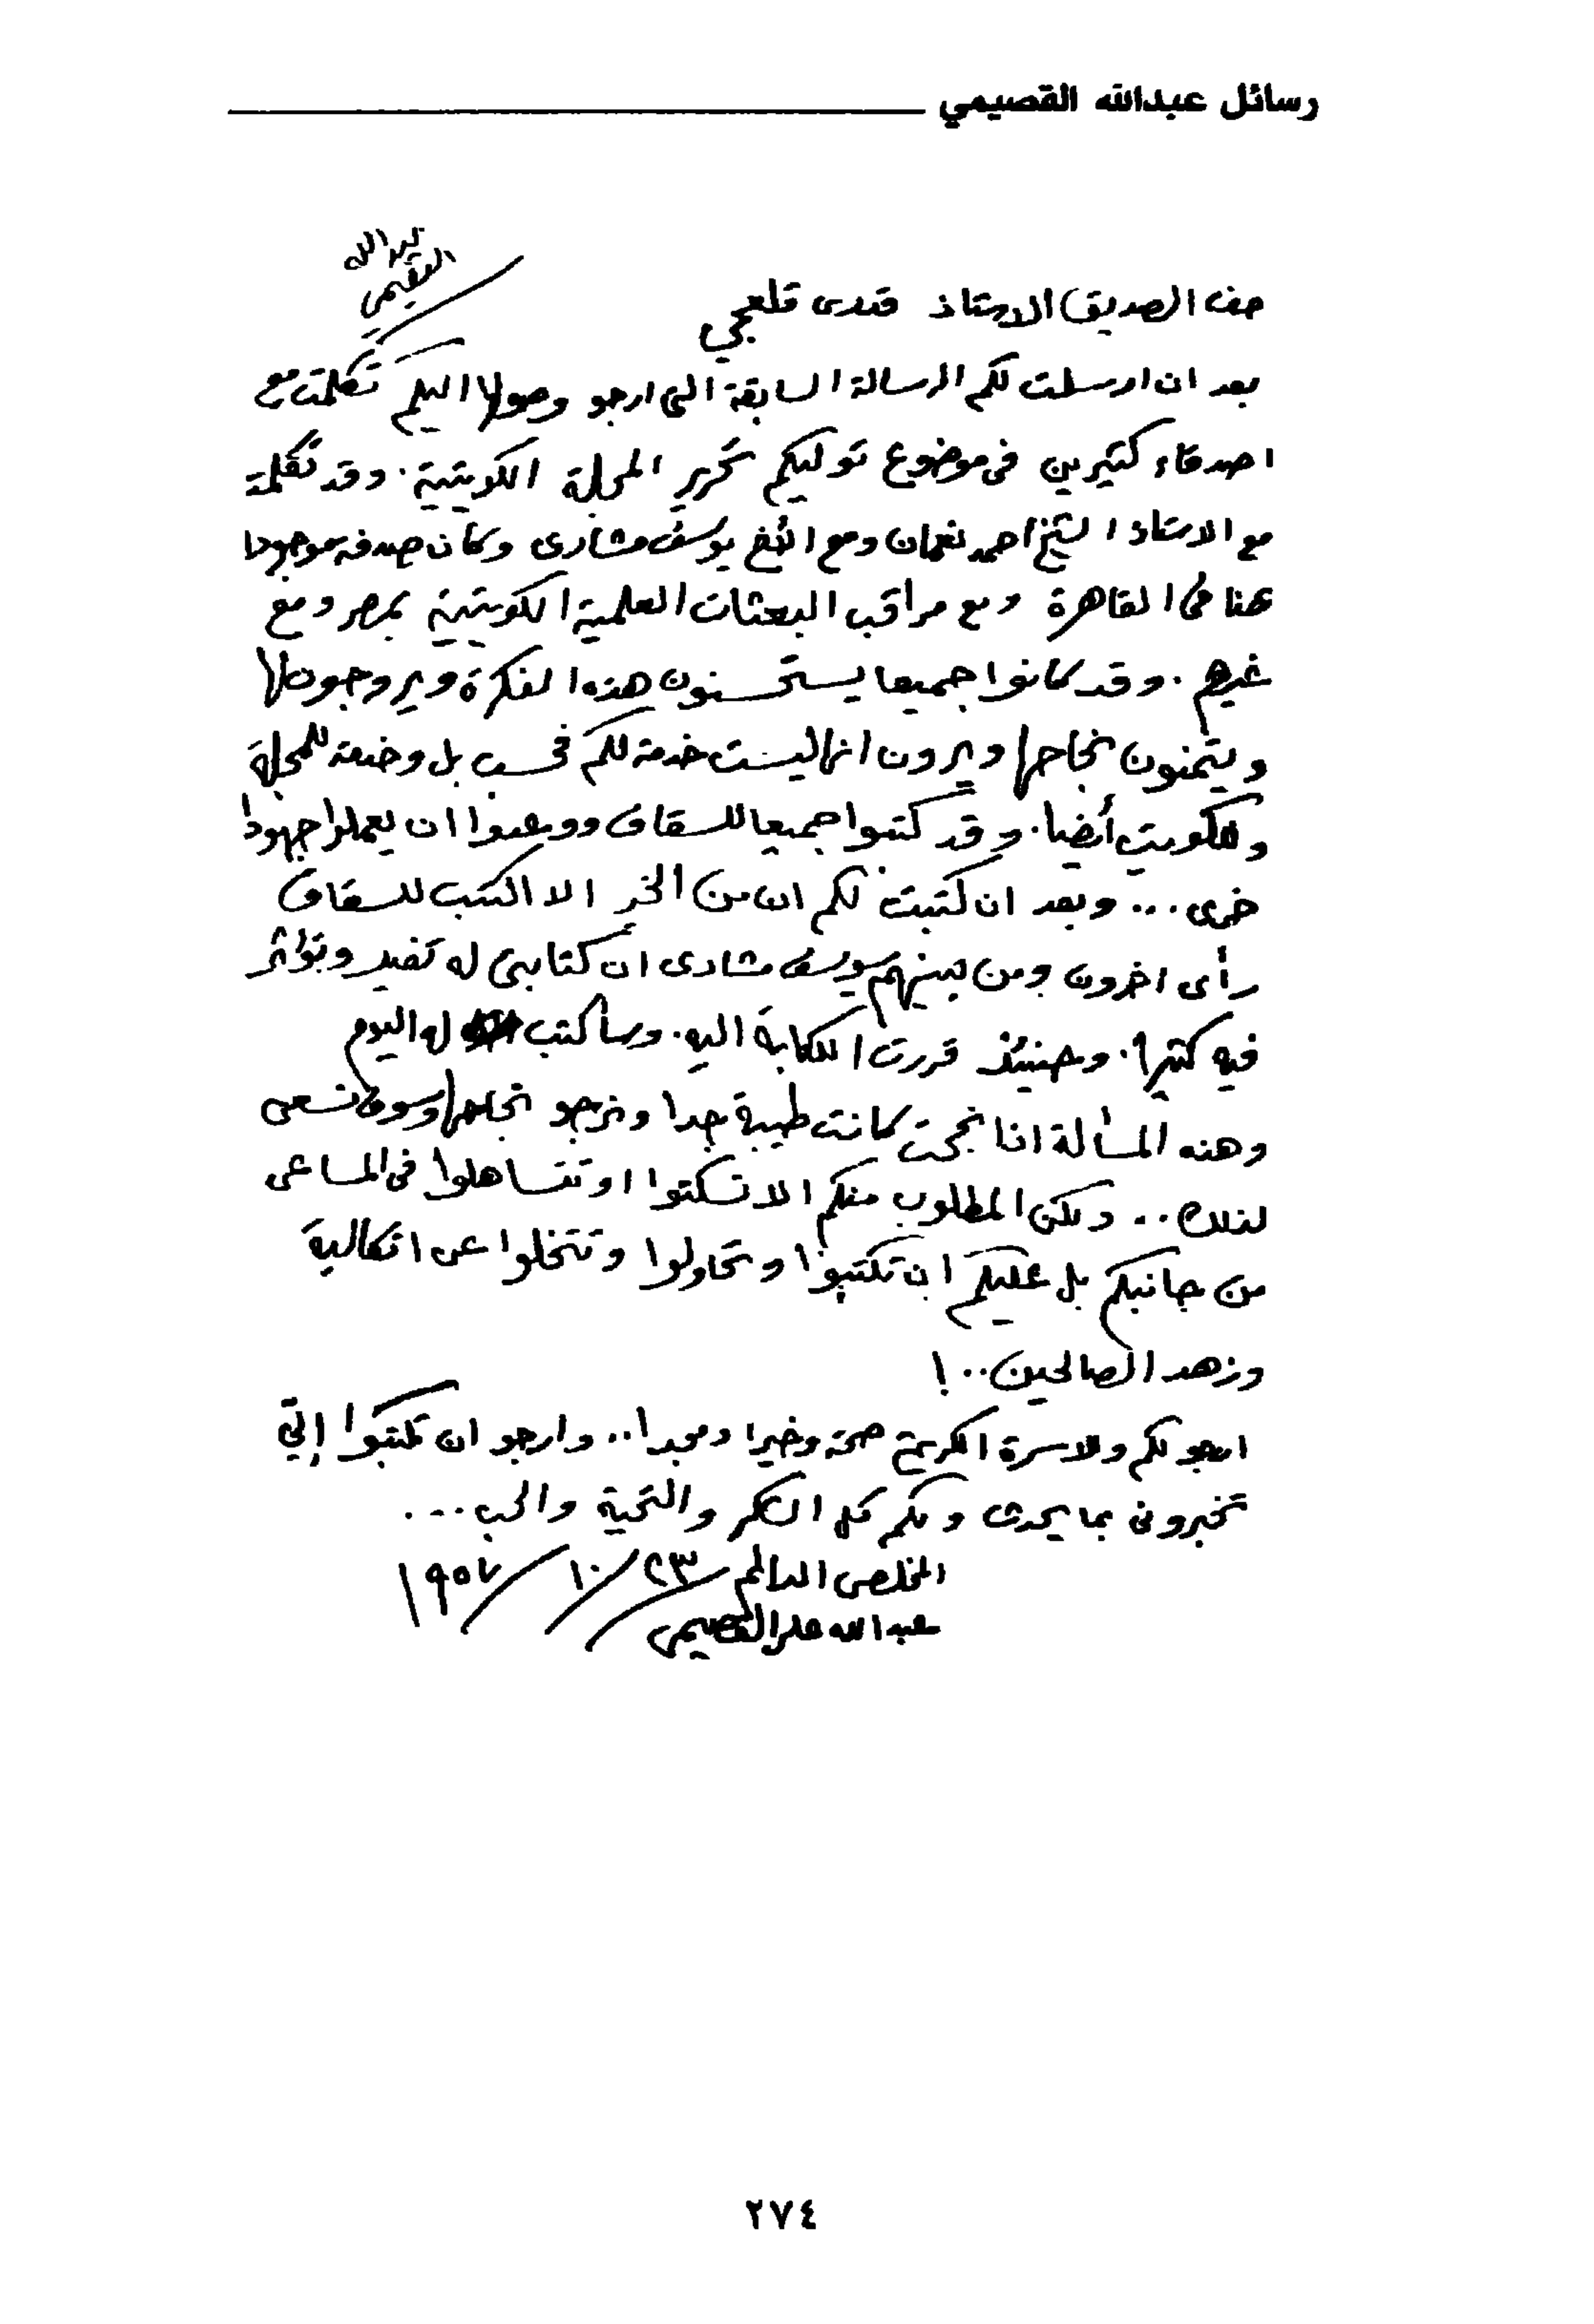 رسائل عبدالله القصيمي
عبدالله
القصيمي
الصديق الاستاذ قدرى قلعجي
بعد ان ارسلت لكم الرسالة السابقة التى ارجو وصولها اليكم تكلمت مع
اصدقاء كثيرين فى موضوع توليكم تحرير المجلة الكويتية. وقد تكلمت
مع الاستاذ الشيخ احمد نعمان ومع الأخ يوسف مشارى وكان صدفة موجودا
هنا فى القاهرة ومع مراقب البعثات العلمية الكويتية بمصر ومع
غيرهم. وقد كانوا جميعا يستحسنون هذه الفكرة ويروجون لها
ويتمنون نجاحها ويرون انها ليست خدمة لكم فحسب بل وخدمة للمجلة
وللكويت أيضا. وقد كتبوا جميعا للسقاف ووعدوا ان يعملوا جهودا
اخرى... وبعد ان كتبت لكم ان من الخير الا اكتب للسقاف
رأى اخرون ومن بينهم يوسف مشارى ان كتابتى له تفيد وتؤثر
فيه كثيرا. وحينئذ قررت الكتابة اليه. وسأكتب له اليوم
وهذه المسألة اذا نجحت كانت طيبة جدا ونرجو نجاحها وسوف نسعى
لذلك.. ولكن المطلوب منكم الا تسكتوا او تتساهلوا فى المساعى
من جانبكم بل عليكم ان تكتبوا وتحاولوا وتتخلوا عن اتكالية
وزهد الصالحين..!
ارجو لكم وللاسرة الكريمة صحة وخيرا ومجدا.. وارجو ان تكتبوا إلي
تخبرونى بما يحدث ولكم كل الشكر والتحية والحب...
المخلص لكم ٢٣/١٠/١٩٥٧
عبدالله على القصيمى
٢٧٤